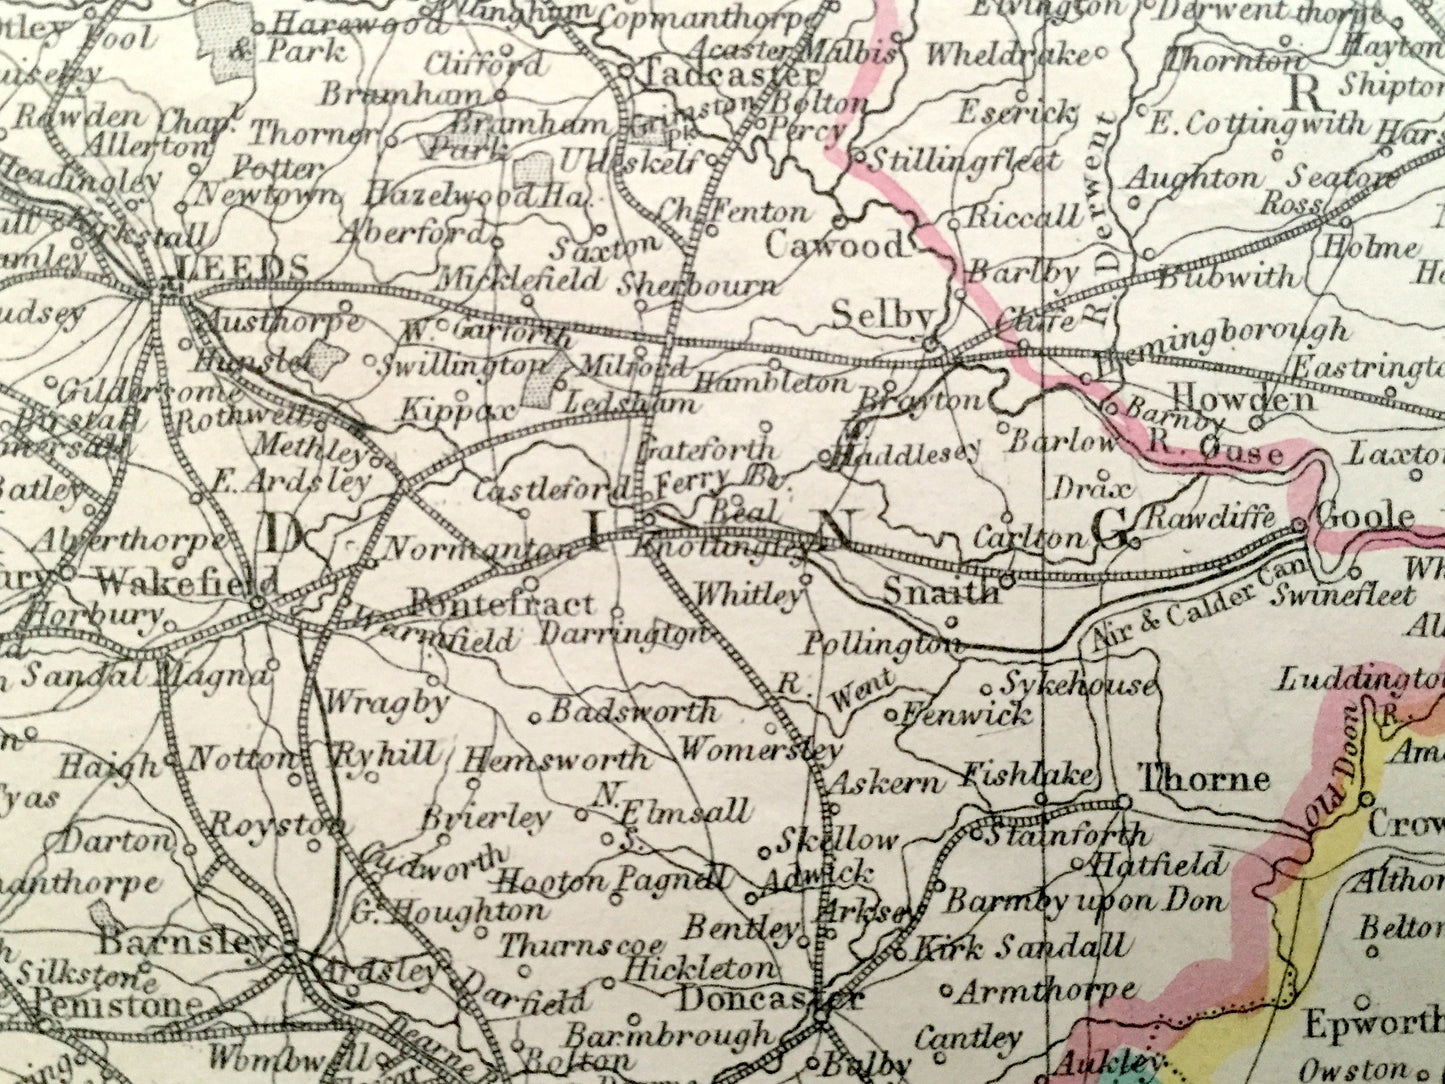 Pool
Harewood
& Park
Copmanthorpe
Acaster Malbis
Elvington
Derwent thorpe
Wheldrake
Thornton
Hayton
Clifford
Tadcaster
R
Shipton
Bramham
Grimston
Pk
Bolton
Percy
Eserick
E. Cottingwith
Rawden
Chap.
Allerton
Thorner
Bramham
Park
Ulleskelf
Stillingfleet
R. Derwent
Aughton
Seaton
Ross
Headingley
Potter
Newtown
Hazelwood Ha.
Ch. Fenton
Riccall
Kirkstall
Aberford
Saxton
Cawood
Holme
LEEDS
Micklefield
Sherbourn
Barlby
Bubwith
Austhorpe
W. Garforth
Selby
Cliffe
Hemingborough
Hunslet
Swillington
Milford
Hambleton
Gildersome
Rothwell
Kippax
Ledsham
Brayton
Barnby
Howden
Methley
Gateforth
Haddlesey
Barlow
R. Ouse
E. Ardsley
Castleford
Ferry Br.
Drax
Beal
Rawcliffe
Goole
D I N G
Alverthorpe
Normanton
Knottingley
Carlton
Wakefield
Pontefract
Whitley
Snaith
Air & Calder Can
Swinefleet
Horbury
Warmfield
Darrington
Pollington
Sandal Magna
R. Went
Sykehouse
Luddington
Wragby
Badsworth
Fenwick
R.
Haigh
Notton
Ryhill
Hemsworth
Womersley
Old Doon
Askern
Fishlake
Thorne
N.
Elmsall
S.
Royston
Brierley
Skellow
Stainforth
Darton
Cudworth
Hooton Pagnell
Adwick
Hatfield
G. Houghton
Barmby upon Don
Barnsley
Thurnscoe
Bentley
Kirk Sandall
Silkstone
Ardsley
Hickleton
Penistone
Darfield
Doncaster
Armthorpe
Epworth
Wombwell
Dearne
Barmbrough
Cantley
Bolton
Balby
Aukley
Owston